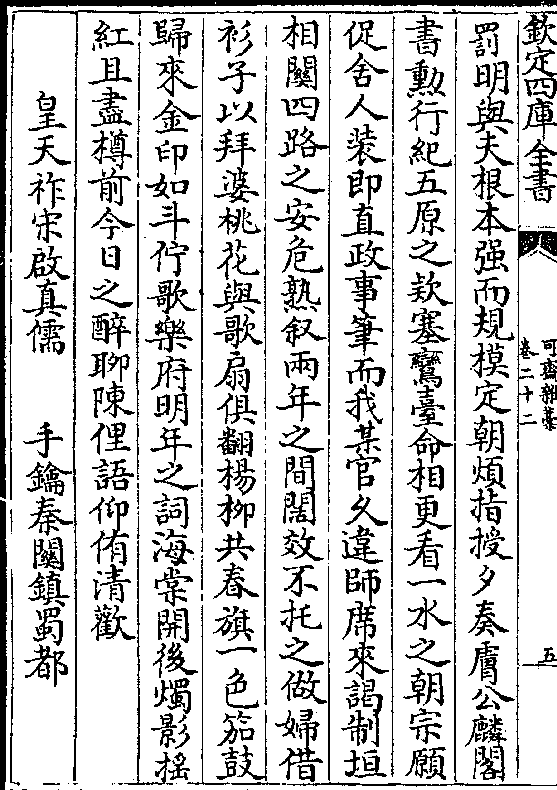 欽定四庫全書
可齋雜藁
卷二十二
五
罰明與夫根本强而規模定朝煩指授夕奏膚公麟閣
書勲行紀五原之欵塞鸞臺命相更看一水之朝宗願
促舍人装即直政事筆而我某官久違師席來謁制垣
相關四路之安危熟叙兩年之間闊效不托之做婦借
衫子以拜婆桃花與歌扇俱翻楊柳共春旗一色笳鼓
歸來金印如斗佇歌樂府明年之詞海棠開後燭影摇
紅且盡樽前今日之醉聊陳俚語仰侑清歡
皇天祚宋啟真儒 手鑰秦關鎮蜀都